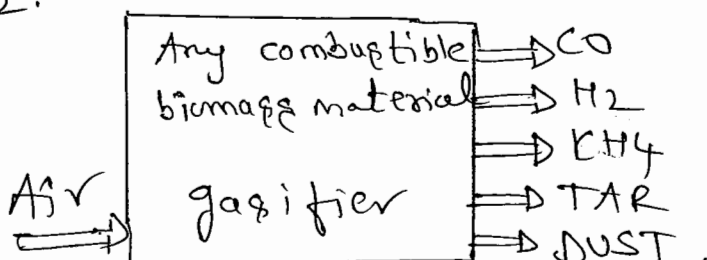 2.
Any combustible
biomass material
gasifier
Air
CO
H2
CH4
TAR
DUST